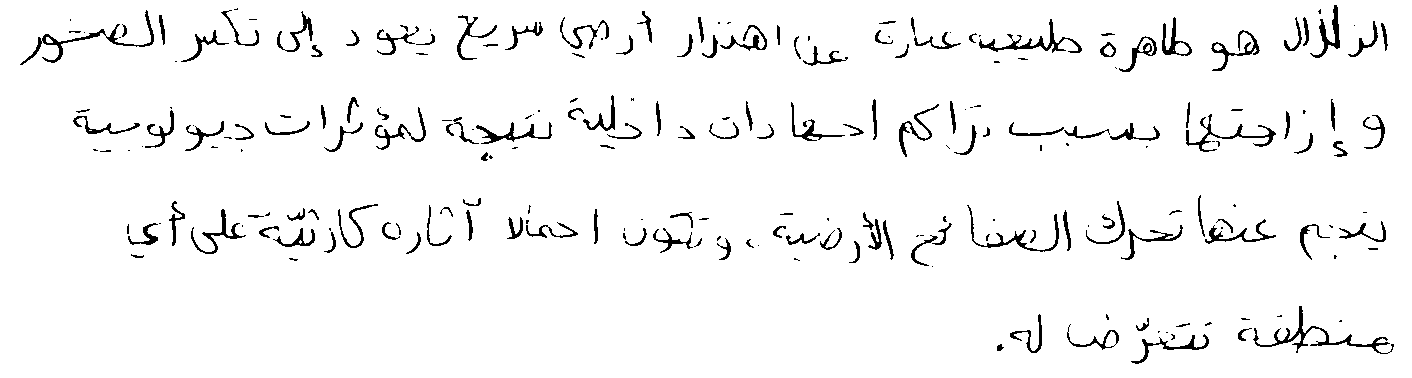 الزلازال هو ظاهرة طبيعية عبارة عن اهتزاز أرضي سريع يعود إلى تكسر الصخور
وإزاحتها بسبب تراكم اجهادات داخلية نتيجة لمؤثرات جيولوجية
ينجم عنها تحرك الصفائح الأرضية، وتكون اجمالا آثاره كارثيّة على أي
منطقة تتعرّضا له.